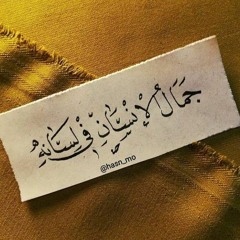 جَمَالُ الْإِنْسَانِ فِي لِسَانِهِ
@hasn_mo